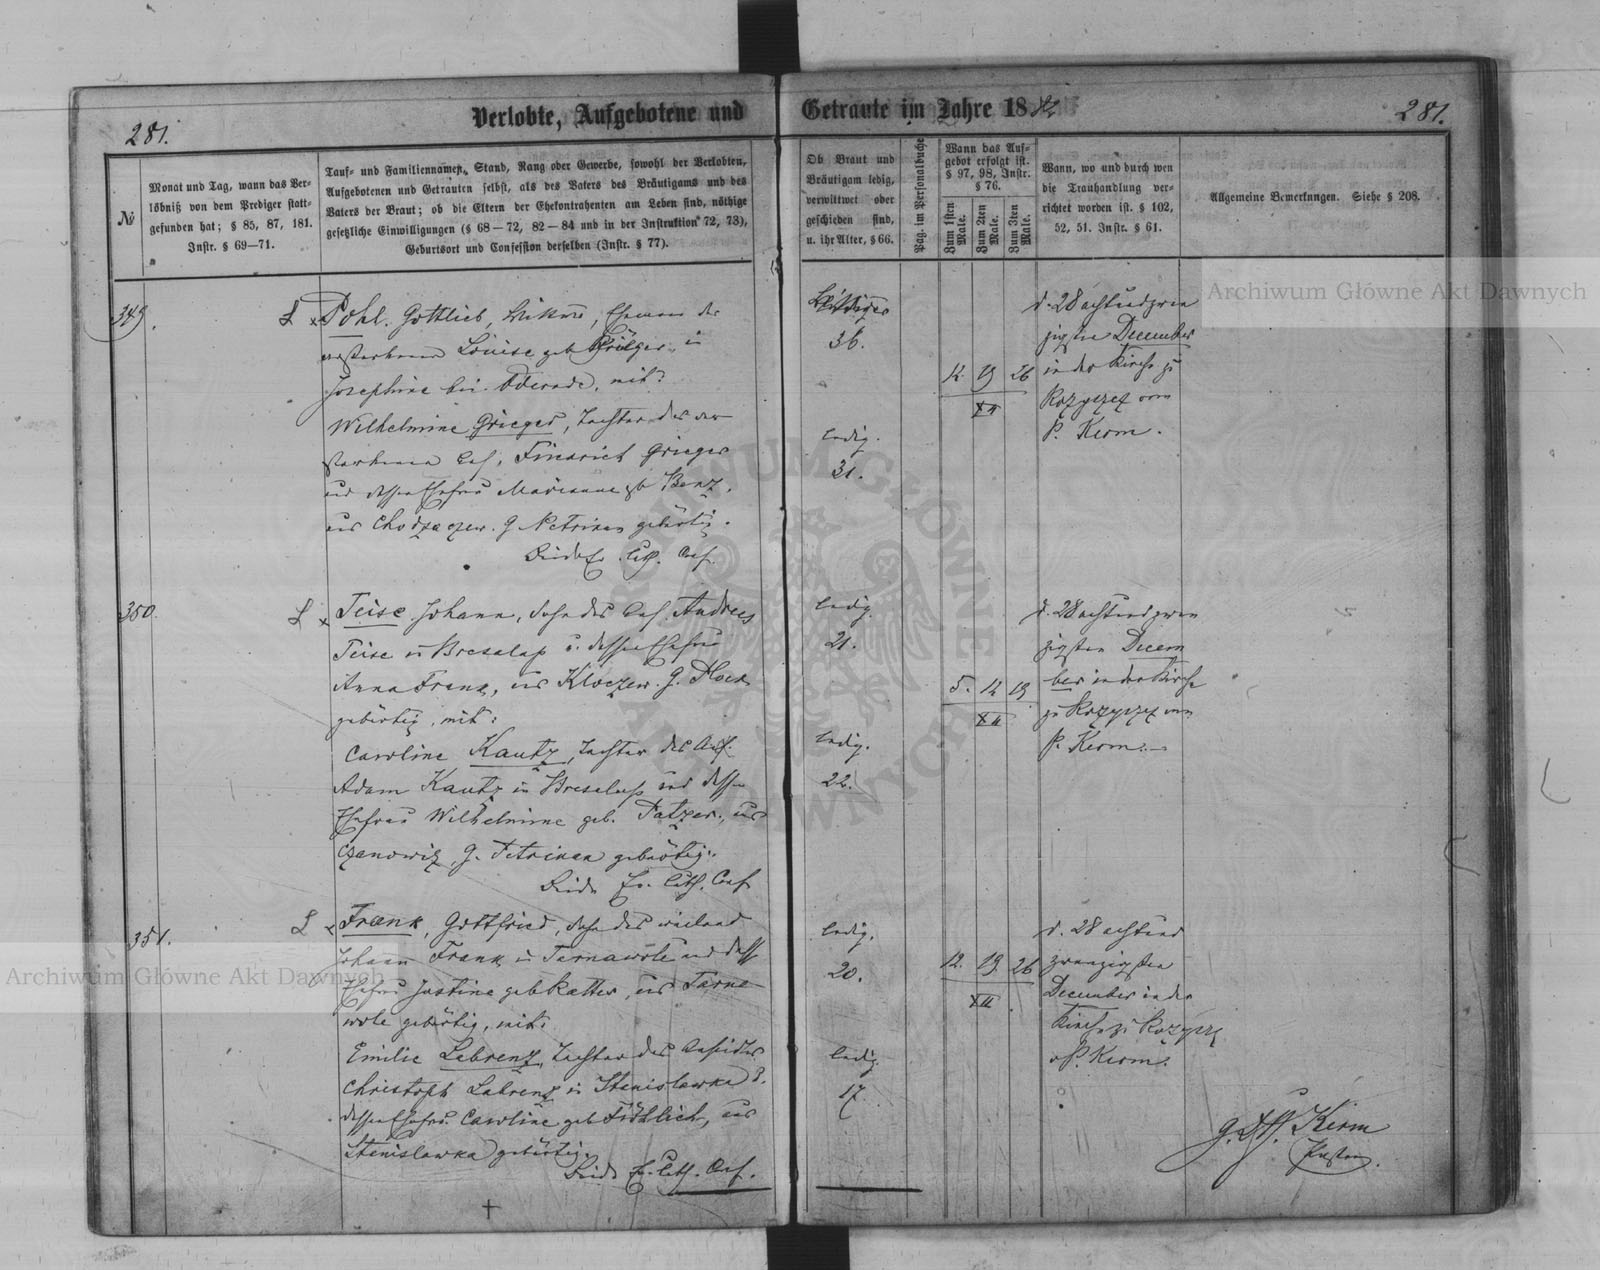 281.
Verlobte, Aufgebotene und
Getraute im Jahre 18
281.
№
Monat und Tag, wann das Ver-
löbniß von dem Prediger statt-
gefunden hat; § 85, 87, 181.
Instr. § 69—71.
Tauf- und Familiennamen, Stand, Rang oder Gewerbe, sowohl der Verlobten,
Aufgebotenen und Getrauten selbst, als des Vaters des Bräutigams und des
Vaters der Braut; ob die Eltern der Ehekontrahenten am Leben sind, nöthige
gesetzliche Einwilligungen (§ 68 — 72, 82 — 84 und in der Instruktion 72, 73),
Geburtsort und Confession derselben (Instr. § 77).
Ob Braut und
Bräutigam ledig,
verwittwet oder
geschieden sind,
u. ihr Alter, § 66.
Pag. im Personalbuche
Wann das Auf-
gebot erfolgt ist.
§ 97, 98, Instr.
§ 76.
Zum 1sten Male.
Zum 2ten Male.
Zum 3ten Male.
Wann, wo und durch wen
die Trauhandlung ver-
richtet worden ist. § 102,
52, 51. Instr. § 61.
Allgemeine Bemerkungen. Siehe § 208.
349.
Pohl, Gottlieb, Wittwer, Ehemann der
verstorbenen Louise geb. in
Josephine bei mit:
Wilhelmine Grieger, Tochter des ver-
storbenen Col. Friedrich Grieger
und dessen Ehefrau Marianne geb. Benz,
aus G. Petrikau gebürtig.
Beide Ev. luth. Conf.
Wittwer
36.
ledig.
31.
12. 19 26
XII
d. 28 achtundzwan
zigsten December
in der Kirche zu
Rozyszcz vom
P. Kerm.
350.
Teise Johann, Sohn des Col. Andreas
Teise in u. dessen Ehefrau
Anna Frank, aus Kloczew. G.
gebürtig, mit:
Caroline Kautz, Tochter des
Adam Kautz in und dessen
Ehefrau Wilhelmine geb. Patzer, aus
G. Petrikau gebürtig.
Beide Ev. luth. Conf.
ledig.
21.
ledig.
22.
5. 12 19
XII
d. 28 achtundzwan
zigsten Decem
ber in der Kirche
zu Rozyszcz vom
P. Kerm.
351.
Frank, Gottfried, Sohn des weiland
Johann Frank in Tarnawole und dess
Ehefrau Justine geb. Ratter, aus Tarna
wole gebürtig, mit:
Emilie Labrenz, Tochter des
Christoph Labrenz in Stanislawka u.
dessen Ehefrau Caroline geb. Fröhlich, aus
Stanislawka gebürtig.
Beide Ev. luth. Conf.
ledig.
20.
ledig.
17
12. 19. 26
XII
d. 28 achtund
zwanzigsten
December in der
Kirche zu Rozyszcz
v. P. Kerm.
Kerm
Pastor.
Archiwum Główne Akt Dawnych
Archiwum Główne Akt Dawnych
ARCHIWUM GŁÓWNE AKT DAWNYCH